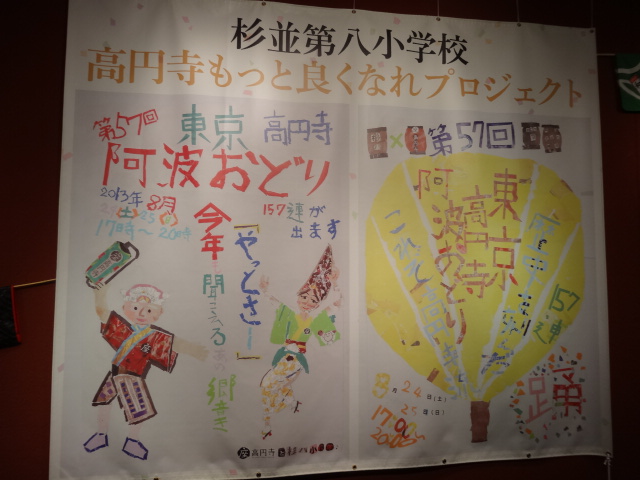 杉並第八小学校
高円寺もっと良くなれプロジェクト
第57回
東京 高円寺
阿波おどり
2013年8月
17時〜20時
157連が
出ます
今年も聞こえる
「やっとさー」
響き
高円寺
第57回
東京
高円寺
阿波おどり
これぞ高円寺
157連
踊
8月24日(土)
25日(日)
17時〜